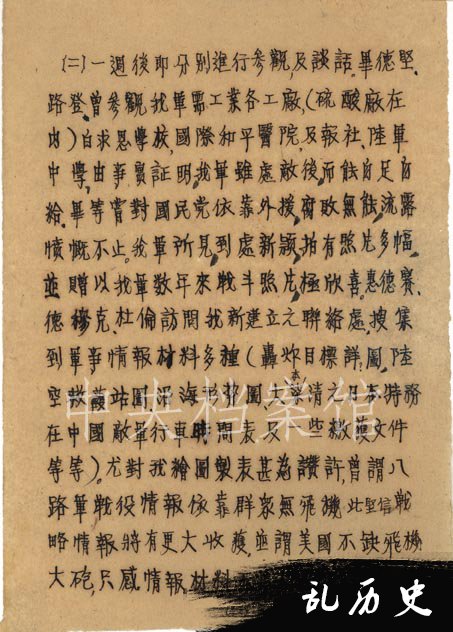 (二)一週後即分别進行参觀,及談話。畢德堅、
路登,曾参觀我軍需工業各工廠,(硫酸廠在
内)白求恩學校,國際和平醫院,及報社、陸軍
中學,由事實証明,我軍雖處敵後而能自足自
給,畢等嘗對國民党依靠外援腐敗無能,流露
憤慨不止。我軍所見到處新穎,拍有照片多幅,
並贈以我軍数年來戰斗照片,極欣喜。惠德賽、
德穆克、杜倫訪問我新建立之聯絡處,搜集
到軍事情報材料多種(轟炸目標詳圖,陸
空救護站圖沿海形勢圖,大
清之日本特務
在中國敵軍行車時間表及一些繳獲文件
等等)。尤對我繪圖製表甚為讚許,曾謂八
路軍戰役情報依靠群眾無飛機此堅信戰
略情報將有更大收獲,並謂美國不缺飛機
大砲,只感情報材料
中央档案馆
乱历史